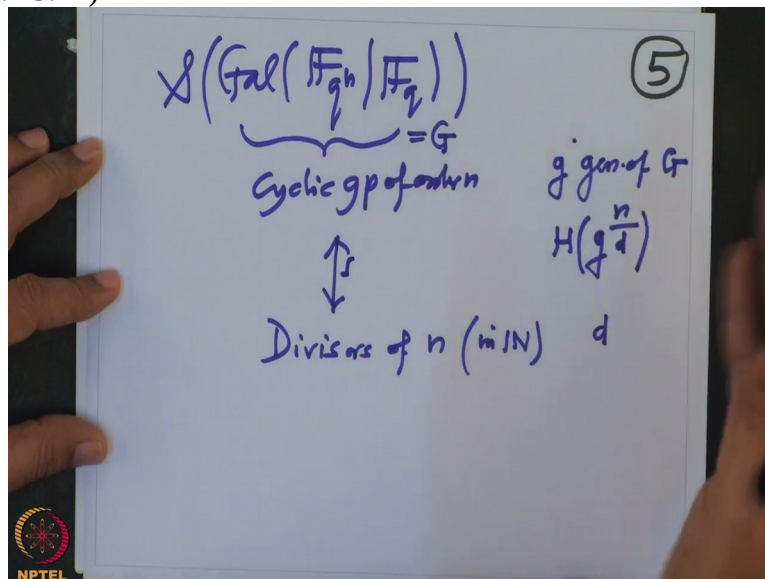 𝒮(Gal(𝔽_{q^n}|𝔽_q))
= G
5
Cyclic gp of order n
g gen. of G
H(g^{n/d})
Divisors of n (in ℕ)
d
NPTEL